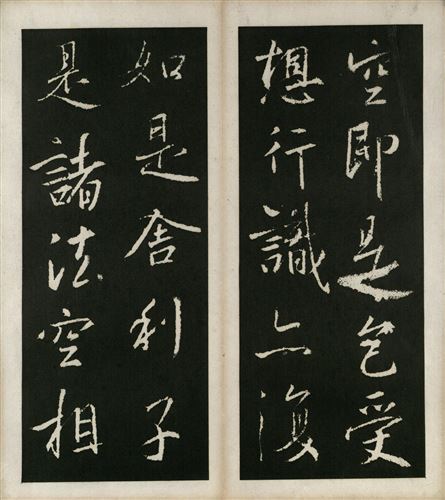 空即是色受
想行識亦復
如是舍利子
是諸法空相